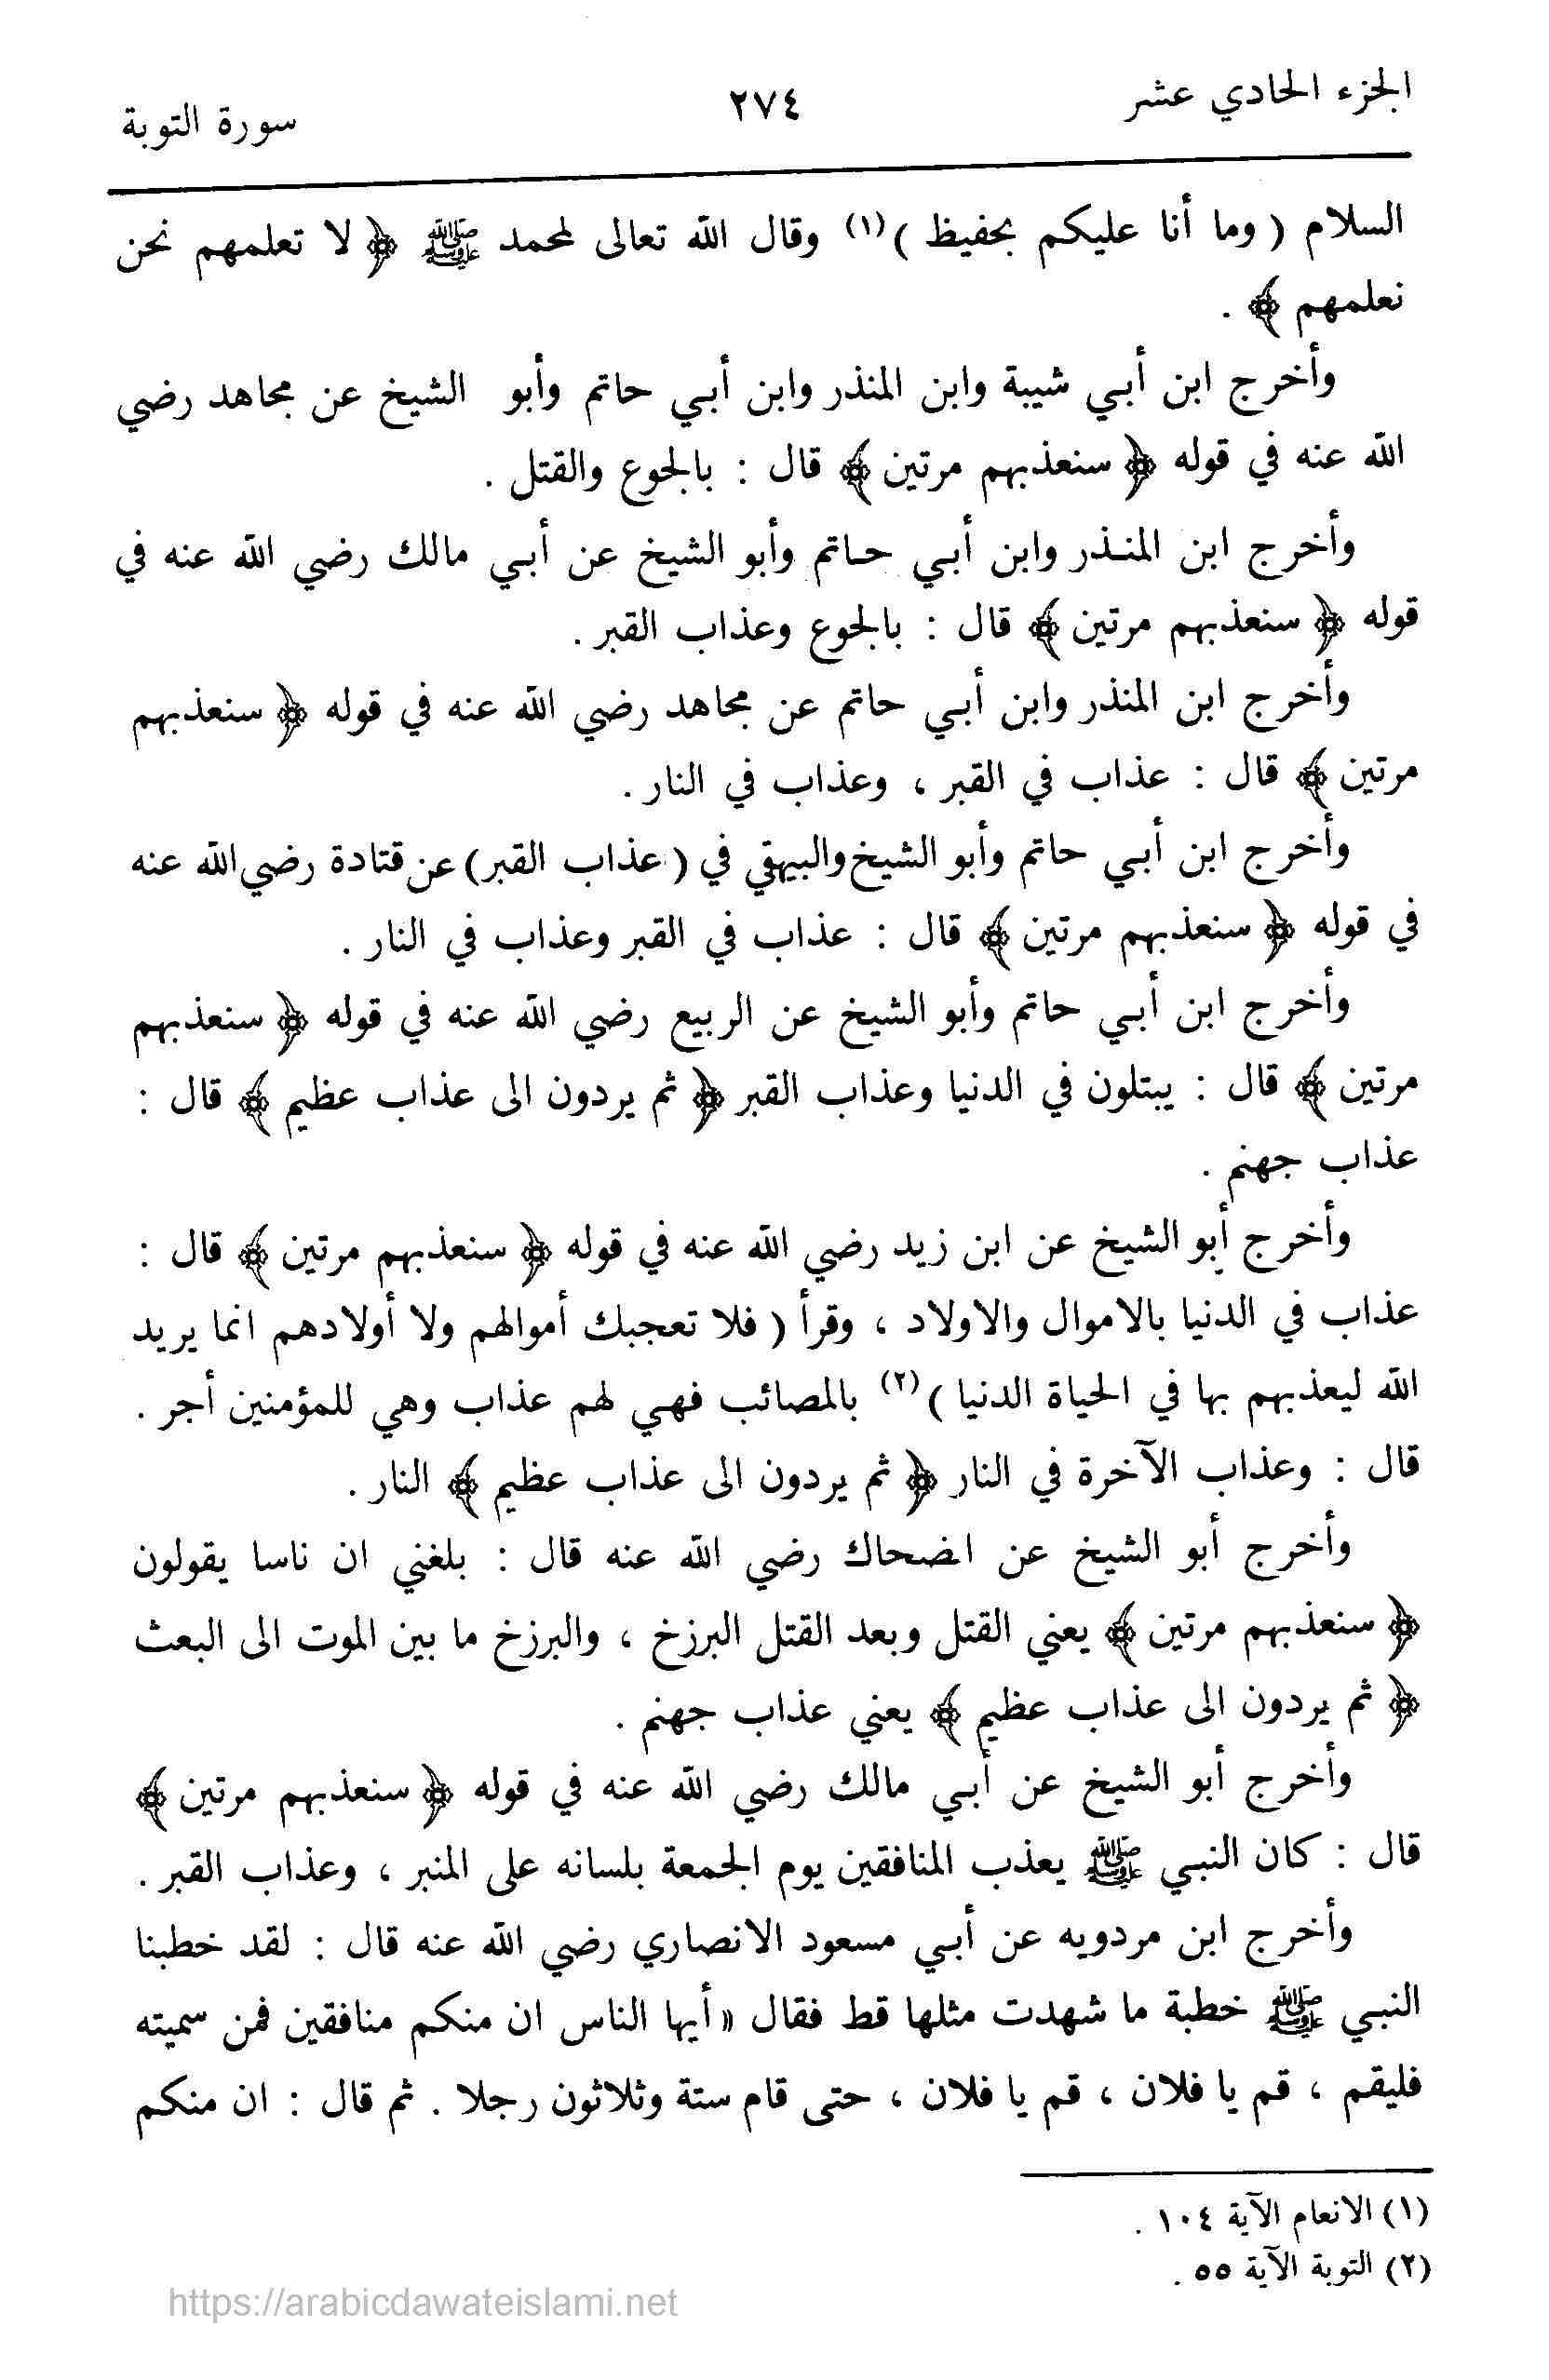 الجزء الحادي عشر
٢٧٤
سورة التوبة
السلام ( وما أنا عليكم بحفيظ )(١) وقال الله تعالى لمحمد ﷺ ﴿ لا تعلمهم نحن
نعلمهم ﴾ .
وأخرج ابن أبي شيبة وابن المنذر وابن أبي حاتم وأبو الشيخ عن مجاهد رضي
الله عنه في قوله ﴿ سنعذبهم مرتين ﴾ قال : بالجوع والقتل .
وأخرج ابن المنذر وابن أبي حاتم وأبو الشيخ عن أبي مالك رضي الله عنه في
قوله ﴿ سنعذبهم مرتين ﴾ قال : بالجوع وعذاب القبر .
وأخرج ابن المنذر وابن أبي حاتم عن مجاهد رضي الله عنه في قوله ﴿ سنعذبهم
مرتين ﴾ قال : عذاب في القبر ، وعذاب في النار .
وأخرج ابن أبي حاتم وأبو الشيخ والبيهقي في ( عذاب القبر ) عن قتادة رضي الله عنه
في قوله ﴿ سنعذبهم مرتين ﴾ قال : عذاب في القبر وعذاب في النار .
وأخرج ابن أبي حاتم وأبو الشيخ عن الربيع رضي الله عنه في قوله ﴿ سنعذبهم
مرتين ﴾ قال : يبتلون في الدنيا وعذاب القبر ﴿ ثم يردون الى عذاب عظيم ﴾ قال :
عذاب جهنم .
وأخرج أبو الشيخ عن ابن زيد رضي الله عنه في قوله ﴿ سنعذبهم مرتين ﴾ قال :
عذاب في الدنيا بالاموال والاولاد ، وقرأ ( فلا تعجبك أموالهم ولا أولادهم انما يريد
الله ليعذبهم بها في الحياة الدنيا )(٢) بالمصائب فهي لهم عذاب وهي للمؤمنين أجر .
قال : وعذاب الآخرة في النار ﴿ ثم يردون الى عذاب عظيم ﴾ النار .
وأخرج أبو الشيخ عن اضحاك رضي الله عنه قال : بلغني ان ناسا يقولون
﴿ سنعذبهم مرتين ﴾ يعني القتل وبعد القتل البرزخ ، والبرزخ ما بين الموت الى البعث
﴿ ثم يردون الى عذاب عظيم ﴾ يعني عذاب جهنم .
وأخرج أبو الشيخ عن أبي مالك رضي الله عنه في قوله ﴿ سنعذبهم مرتين ﴾
قال : كان النبي ﷺ يعذب المنافقين يوم الجمعة بلسانه على المنبر ، وعذاب القبر .
وأخرج ابن مردويه عن أبي مسعود الانصاري رضي الله عنه قال : لقد خطبنا
النبي ﷺ خطبة ما شهدت مثلها قط فقال « أيها الناس ان منكم منافقين فمن سميته
فليقم ، قم يا فلان ، قم يا فلان ، حتى قام ستة وثلاثون رجلا . ثم قال : ان منكم
(١) الانعام الآية ١٠٤ .
(٢) التوبة الآية ٥٥ .
https://arabicdawateislami.net